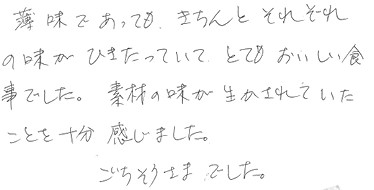 薄味であっても、きちんと それぞれ
の味が ひきたっていて、とても おいしい食
事でした。 素材の味が 生かされていた
ことを十分 感じました。
ごちそうさま でした。